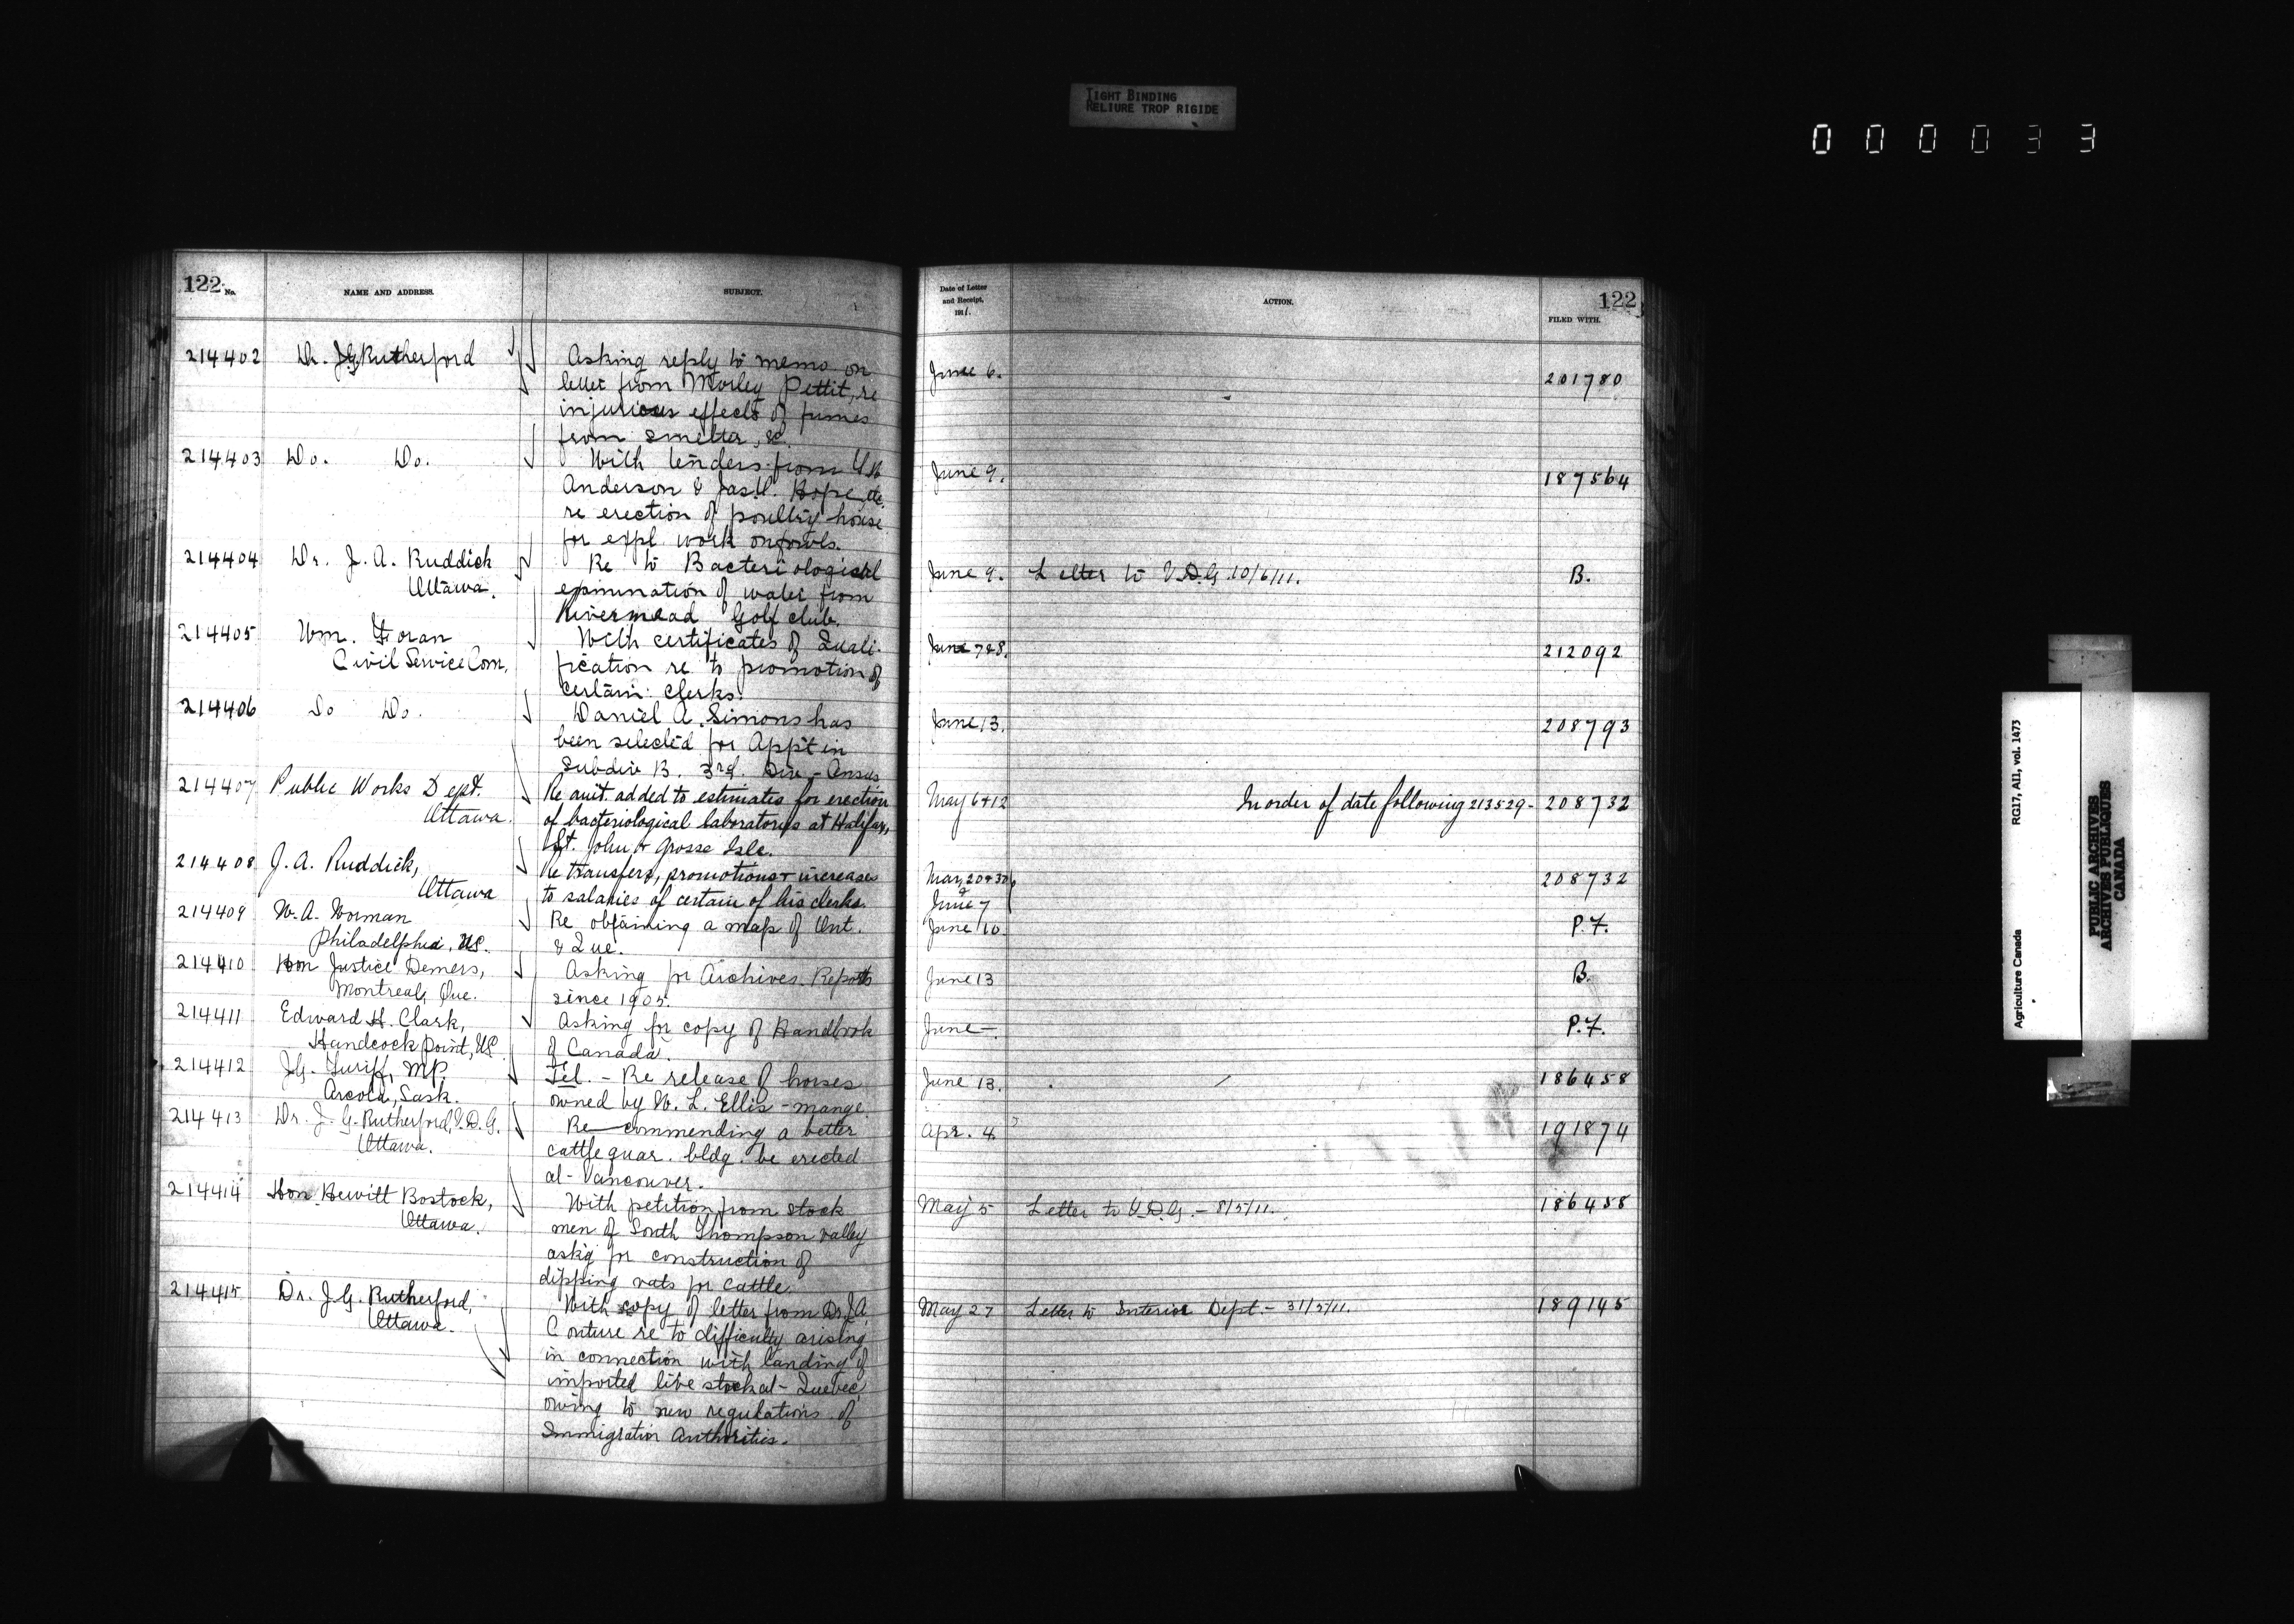 TIGHT BINDING
RELIURE TROP RIGIDE
000033
122 No.
NAME AND ADDRESS.
SUBJECT.
Date of Letter
and Receipt,
1911.
ACTION.
122
FILED WITH.
214402 Dr. J.G. Rutherford
Asking reply to memo on
letter from Morley Pettit, re
injurious effects of fumes
from smelter, &c.
June 6. 201780
214403 Do. Do.
With tenders from
Anderson & Jas. Hope
re erection of poultry house
for expl. work on fowls.
June 9. 187564
214404 Dr. J. A. Ruddick
Ottawa.
Re to Bacteriological
examination of water from
Rivermead Golf club.
June 9. Letter to V.D.G. 10/6/11. B.
214405 Wm. Foran
Civil Service Com.
With certificates of Quali-
fication re to promotion of
certain clerks.
June 7&8. 212092
214406 Do Do.
Daniel A. Simons has
been selected for App't in
Subdiv B. 3rd. Div - Census
June 13. 208793
214407 Public Works Dept.
Ottawa.
Re amt. added to estimates for erection
of bacteriological laboratorys at Halifax,
St. John & Grosse Isle.
May 6 & 12 In order of date following 213529 - 208732
214408 J. A. Ruddick,
Ottawa
Re transfers, promotions & increases
to salaries of certain of his clerks.
May 20 & 30
& June 7 208732
214409 W. A. Worman
Philadelphia, US.
Re obtaining a map of Ont.
& Que.
June 10 P.F.
214410 Hon Justice Demers,
Montreal, Que.
Asking for Archives Reports
since 1905.
June 13 B.
214411 Edward H. Clark,
Handcock Point, US
Asking for copy of Handbook
of Canada.
June -. P.F.
214412 J.G. Turiff, MP.
Arcola, Sask.
Tel. - Re release of horses
owned by W. L. Ellis - mange.
June 13. 186458
214413 Dr. J. G. Rutherford, V.D.G.
Ottawa.
Re-commending a better
cattle quar. bldg. be erected
at Vancouver.
Apr. 4 191874
214414 Hon Hewitt Bostock,
Ottawa.
With petition from stock
men of South Thompson valley
ask'g for construction of
dipping vats for cattle.
May 5 Letter to V.D.G. - 8/5/11. 186458
214415 Dr. J. G. Rutherford,
Ottawa.
With copy of letter from Dr. J.A.
Couture re to difficulty arising
in connection with landing of
imported live stock at Quebec,
owing to new regulations of
Immigration Authorities.
May 27 Letter to Interior Dept. - 31/5/11. 189145
Agriculture Canada RG17, AII, vol. 1473
PUBLIC ARCHIVES
ARCHIVES PUBLIQUES
CANADA